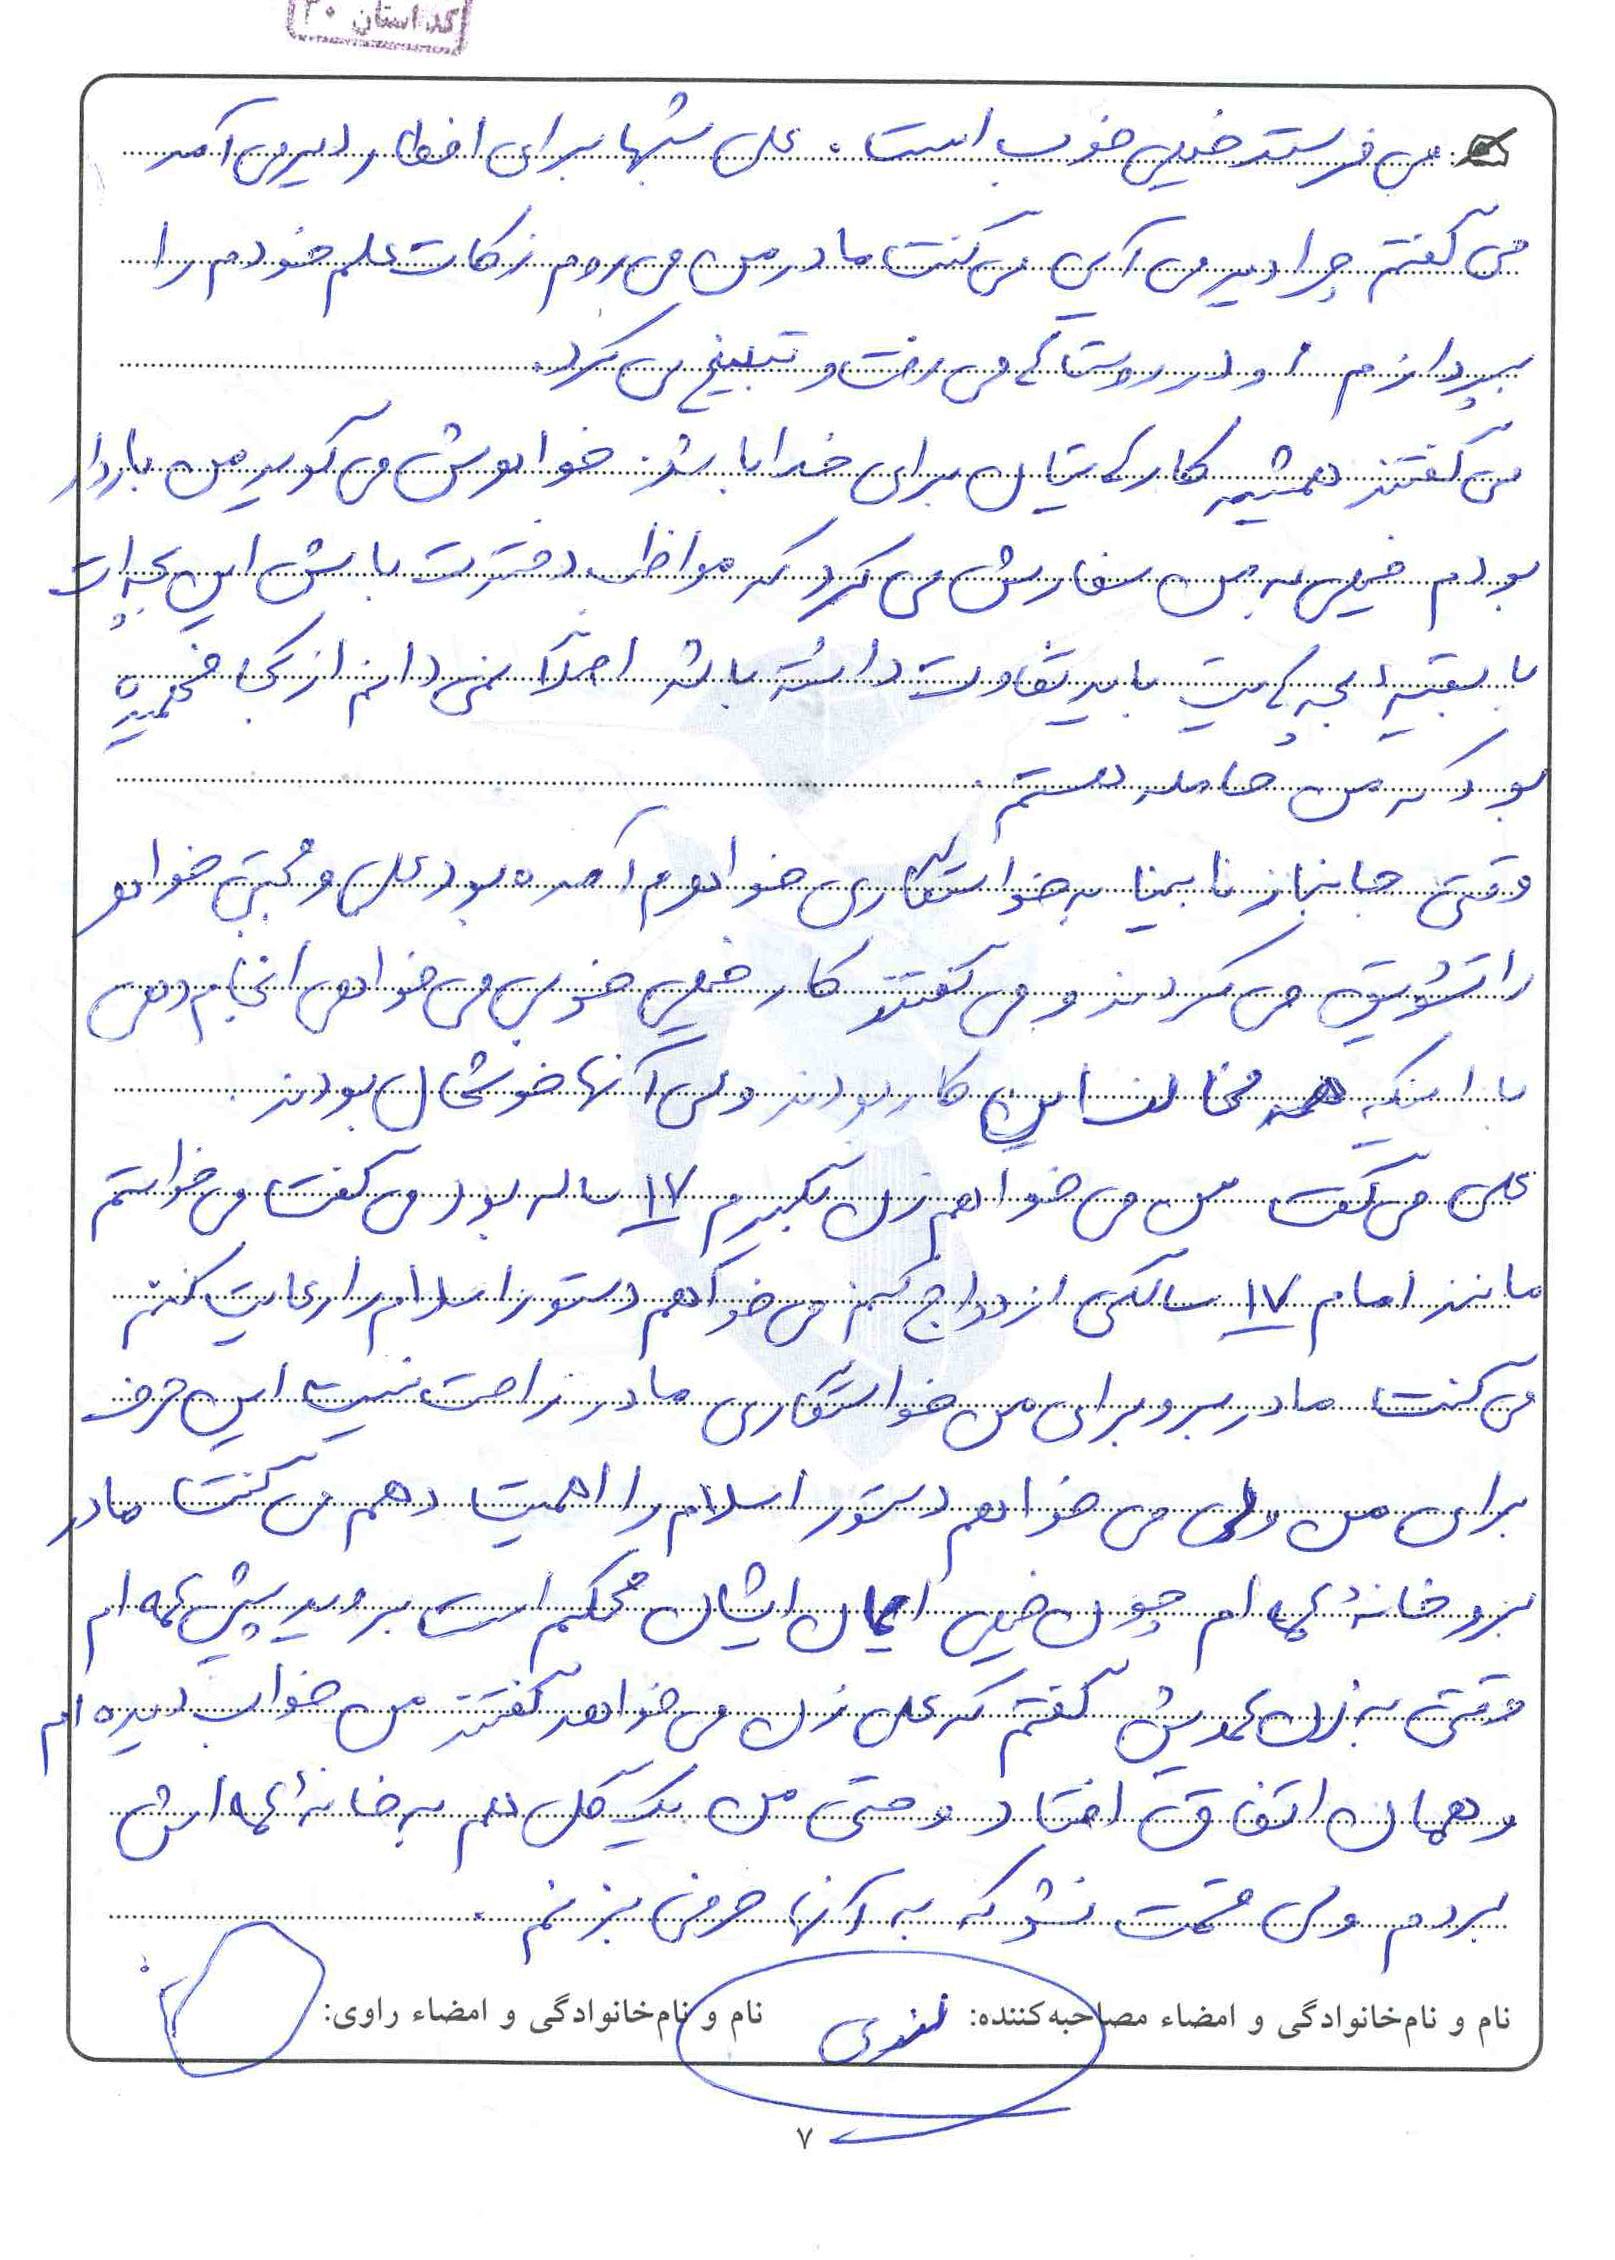 کد استان ۳۰
می فرستد خیلی خوب است. علی شبها برای افطار دیر می آمد
می گفتم چرا دیر می آیی می گفت مادر من می روم زکات علم خودم را
بپردازم او در روستاها می رفت و تبلیغ می کرد.
می گفتند همیشه کارهایتان برای خدا باشد. خواهرش می گوید من باردار
بودم خیلی به من سفارش می کرد که مواظب دخترت باش این بچه ات
با بقیهٔ بچه هایت باید تفاوت داشته باشد اصلاً نمی دانم از کجا فهمیده
بود که من حامله هستم.
وقتی جانباز نابینا به خواستگاری خواهرم آمده بود علی و مجتبی خواهر
را تشویق می کردند و می گفتند کار خیلی خوبی می خواهی انجام دهی
با اینکه همه مخالف این کار بودند ولی آنها خوشحال بودند.
علی می گفت من می خواهم زن بگیرم ۱۷ ساله بود می گفت می خواستم
مانند امام ۱۷ سالگی ازدواج کنم می خواهم دستور اسلام را رعایت کنم
می گفت مادر برو برای من خواستگاری مادر راحت نیست این حرف
برای من ولی می خواهم دستور اسلام را اهمیت دهم می گفت مادر
برو خانهٔ عمه ام چون خیلی ایمان ایشان محکم است بروید پیش عمه ام
وقتی به زن عمویش گفتم که علی زن می خواهد گفتند من خواب دیده ام
و همان اتفاق افتاد و حتی من یک گل هم به خانهٔ عمه اش
بردم ولی قسمت نشد که به آنها حرفی بزنم.
نام و نام‌خانوادگی و امضاء مصاحبه‌کننده: نام و نام‌خانوادگی و امضاء راوی:
۷